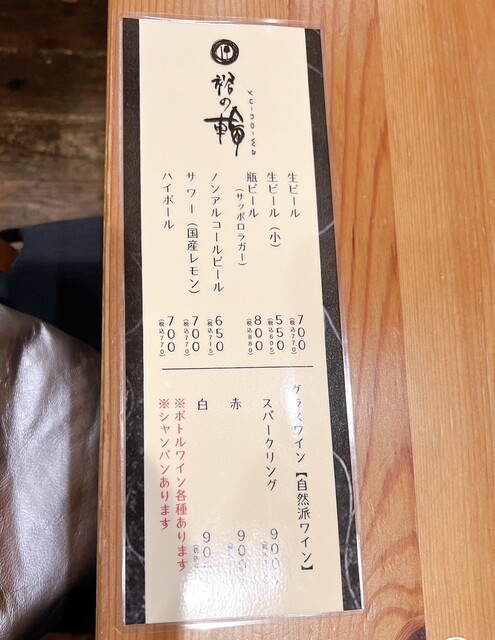 裕の輪
yu-no-wa
生ビール 700
(税込770)
生ビール(小) 550
(税込605)
瓶ビール 800
(サッポロラガー) (税込880)
ノンアルコールビール 650
(税込715)
サワー(国産レモン) 700
(税込770)
ハイボール 700
(税込770)
グラスワイン【自然派ワイン】
スパークリング 900
赤 900
白 90
※ボトルワイン各種あります
※シャンパンあります